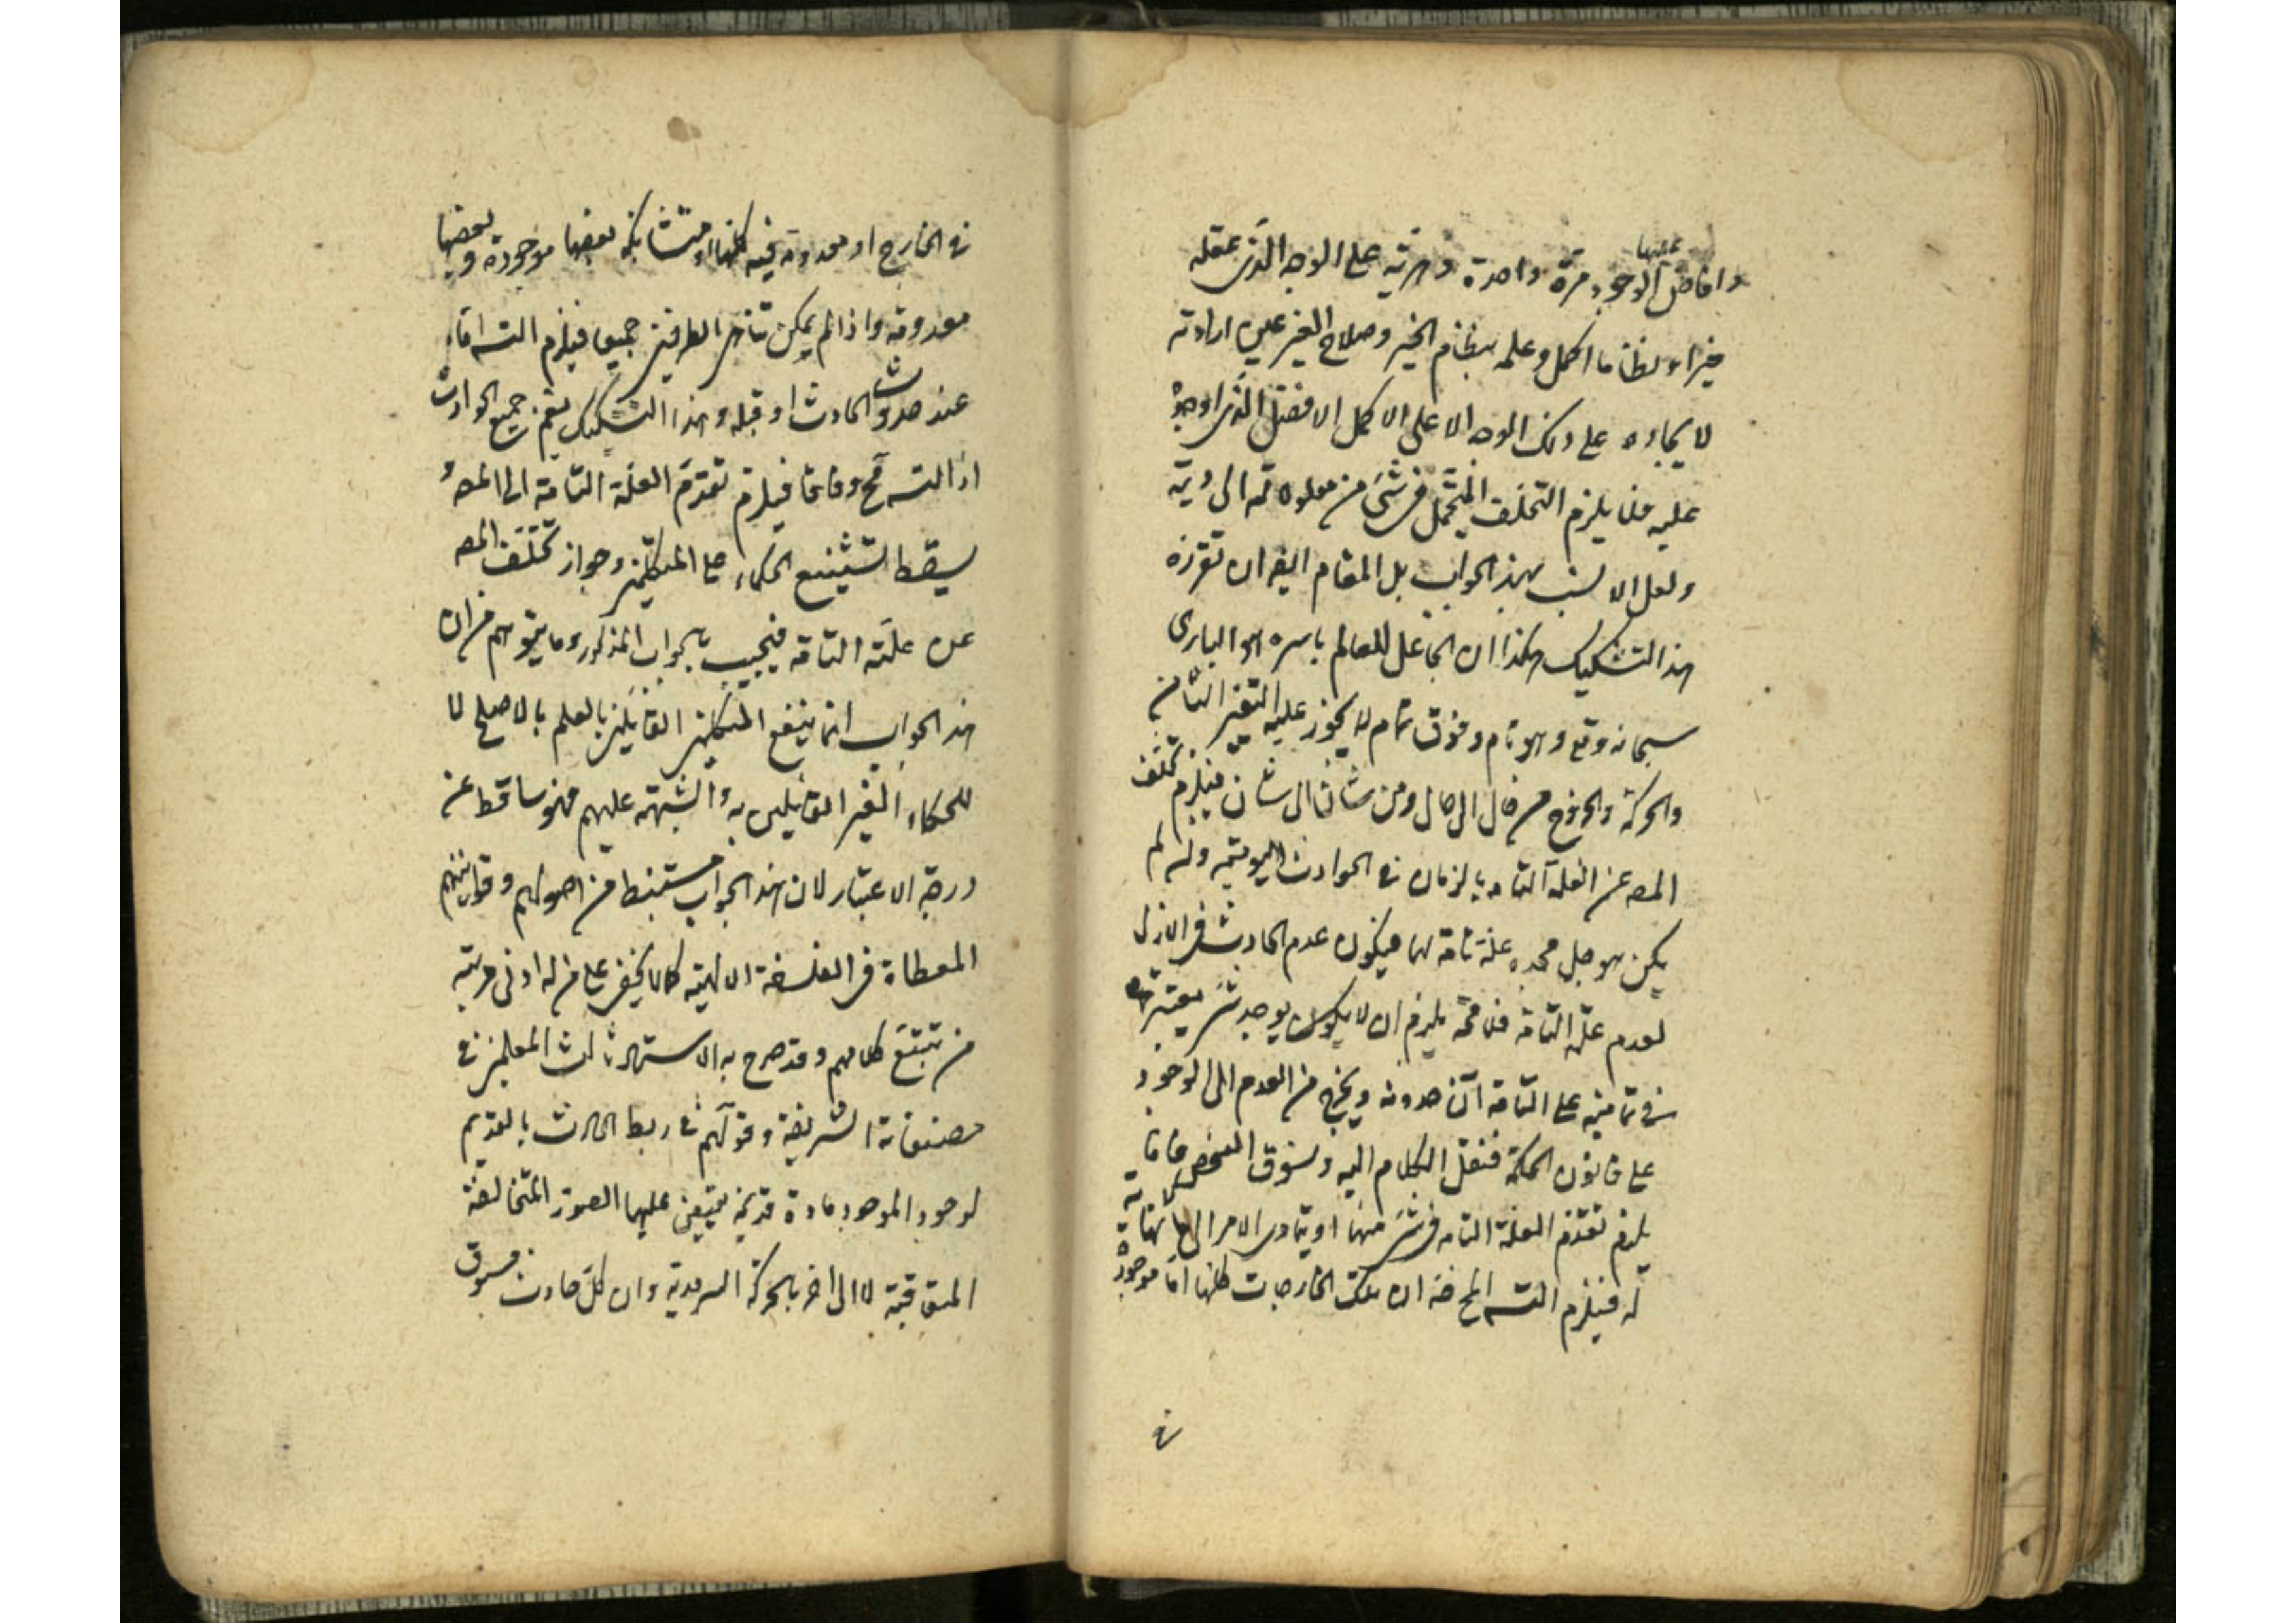 وافاض عليها الوجود مرّة واحدة دهريّة على الوجه الذى عقله
خيرا ونظاما اكمل وعلمه بنظام الخير وصلاح الغير عين ارادته
لايجاده على ذلك الوجه الاعلى الاكمل الافضل الذى اوجده
عليه فلا يلزم التخلف المتخيل فى شئ من معلولاته الى
ولعل الانسب بهذا الجواب بل المقام ايض ان تقرر
هذا التشكيك هكذا ان الجاعل للعالم باسره هو البارى
سبحانه وتع وهو تام وفوق تمام لا يجوز عليه التغير
والحركة والخروج من حال الى حال ومن شان الى شان فيلزم تخلف
المعه عن العلة التامه بالزمان فى الحوادث اليوميّه وان لم
يكن هو جل مجده علة تامة لها فيكون عدم الحادث فى الازل
لعدم علته التامة فلا محة يلزم ان لا يكون يوجد شئ يعتبر
فى تماميه علته التامة آن حدوثه ويخرج من العدم الى الوجود
على قانون الحكمة فننقل الكلام اليه ونسوق الفحص فاما
يلزم تقدم العلة التامه فى شئ منها او يتمادى الامر الى ما لا نهاية
له فيلزم التسه المح فان تلك الخارجات كلها اما موجودة
فى
فى الخارج او معدومة فيه كلها او متشابكه بعضها موجودة وبعضها
معدومة واذا لم يمكن تناهى الطرفين جميعا فيلزم التسه اما
عند حدوث الحادث او قبله وهذا التشكيك يعم جميع الحوادث
اذ التسه مح وفاقا فيلزم تقدّم العلّة التامّة الى المعه
يسقط تشنيع الحكماء على المتكلمين وجواز تخلّف المعه
عن علّته التامة فيجيب بالجواب المذكور وما يتوهم من ان
هذا الجواب انما ينفع المتكلمين القائلين بالعلم بالاصلح لا
للحكماء الغير القائلين به والشبهة عليهم فهو ساقط عن
درجة الاعتبار لان هذا الجواب مستنبط من اصولهم وقوانينهم
المعطاة فى الفلسفة الالهية كما لا يخفى على من له ادنى مرتبه
من تتبّع كلامهم وقد صرح به الاستاد ثالث المعلمين فى
مصنفاته الشريفة وقولهم فى ربط الحادث بالقديم
لوجود الموجود مادة قديمة يتعين عليها الصور المتخالفة
المتعاقبة لا الى اخر بالحركة السرمدية وان كلّ حادث مسبوق